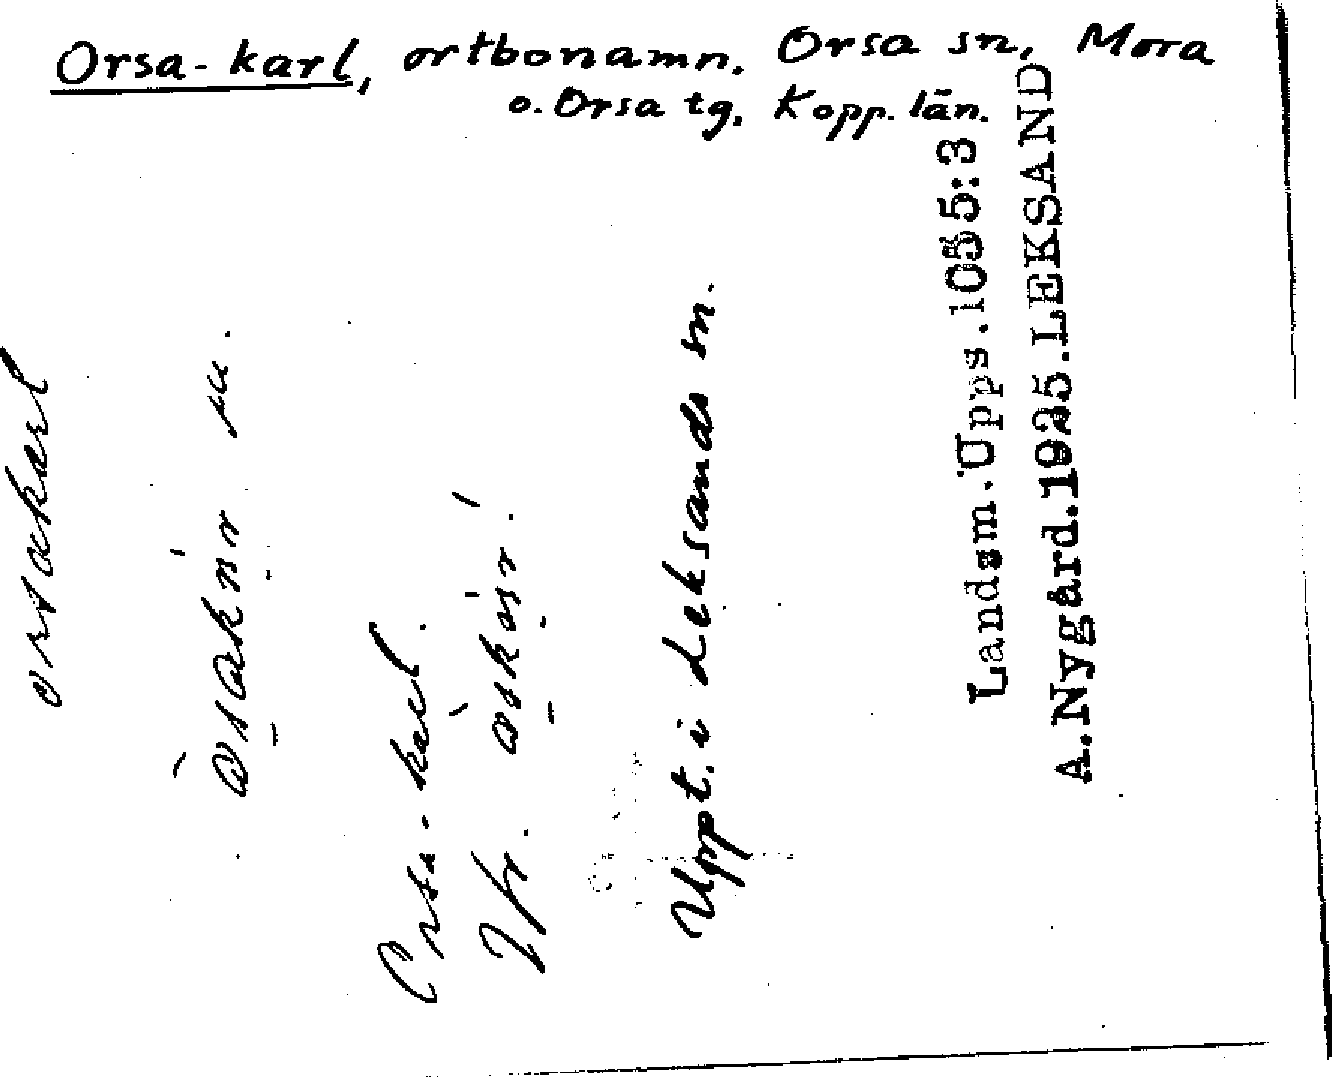 Orsa-karl, ortbonamn. Orsa sn, Mora
o. Orsa tg. Kopp. län.
orsakarl
Orsa-karl.
Jfr.
Uppt. i Leksands sn.
Landsm.Upps.1055:3
A.Nygård.1925.LEKSAND